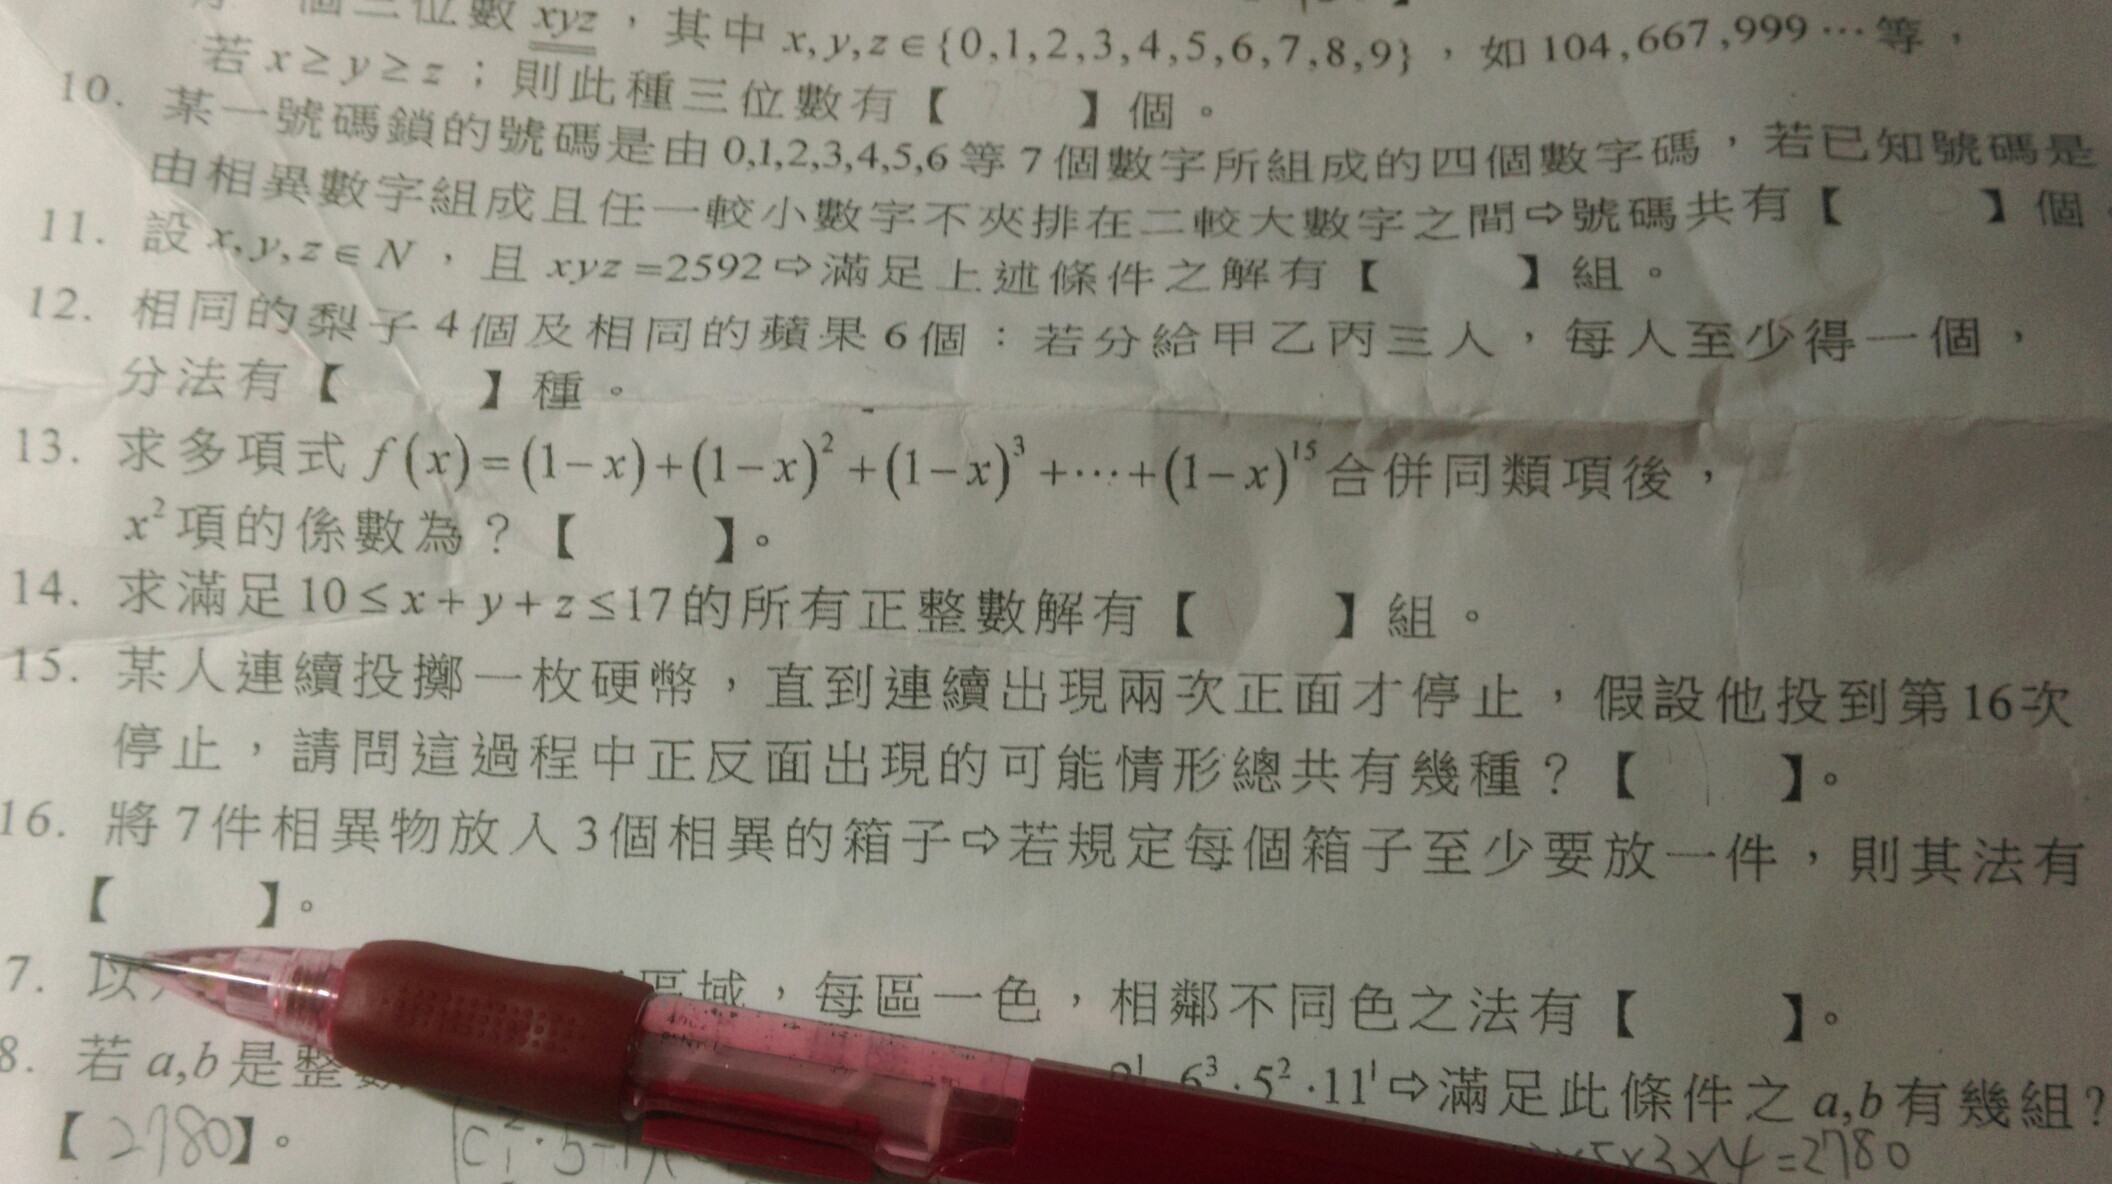 個三位數 xyz，其中 x,y,z∈{0,1,2,3,4,5,6,7,8,9}，如 104,667,999⋯等，
若 x≥y≥z；則此種三位數有【 】個。
10. 某一號碼鎖的號碼是由 0,1,2,3,4,5,6 等 7 個數字所組成的四個數字碼，若已知號碼是
由相異數字組成且任一較小數字不夾排在二較大數字之間⇨號碼共有【 】個。
11. 設 x,y,z∈N，且 xyz=2592⇨滿足上述條件之解有【 】組。
12. 相同的梨子 4 個及相同的蘋果 6 個：若分給甲乙丙三人，每人至少得一個，
分法有【 】種。
13. 求多項式 f(x)=(1-x)+(1-x)²+(1-x)³+⋯+(1-x)¹⁵合併同類項後，
x²項的係數為？【 】。
14. 求滿足10≤x+y+z≤17的所有正整數解有【 】組。
15. 某人連續投擲一枚硬幣，直到連續出現兩次正面才停止，假設他投到第16次
停止，請問這過程中正反面出現的可能情形總共有幾種？【 】。
16. 將7件相異物放入3個相異的箱子⇨若規定每個箱子至少要放一件，則其法有
【 】。
7. 以 區域，每區一色，相鄰不同色之法有【 】。
8. 若 a,b是整 6³·5²·11¹⇨滿足此條件之 a,b有幾組？
【2780】。 ×5×3×4=2780